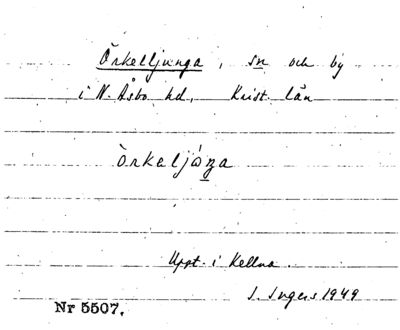 Örkelljunga, sn och by
i N. Åsbo hd, Krist. län
òrkeljóŋa
Uppt. i Kellna.
I. Ingers 1949
Nr 5507.